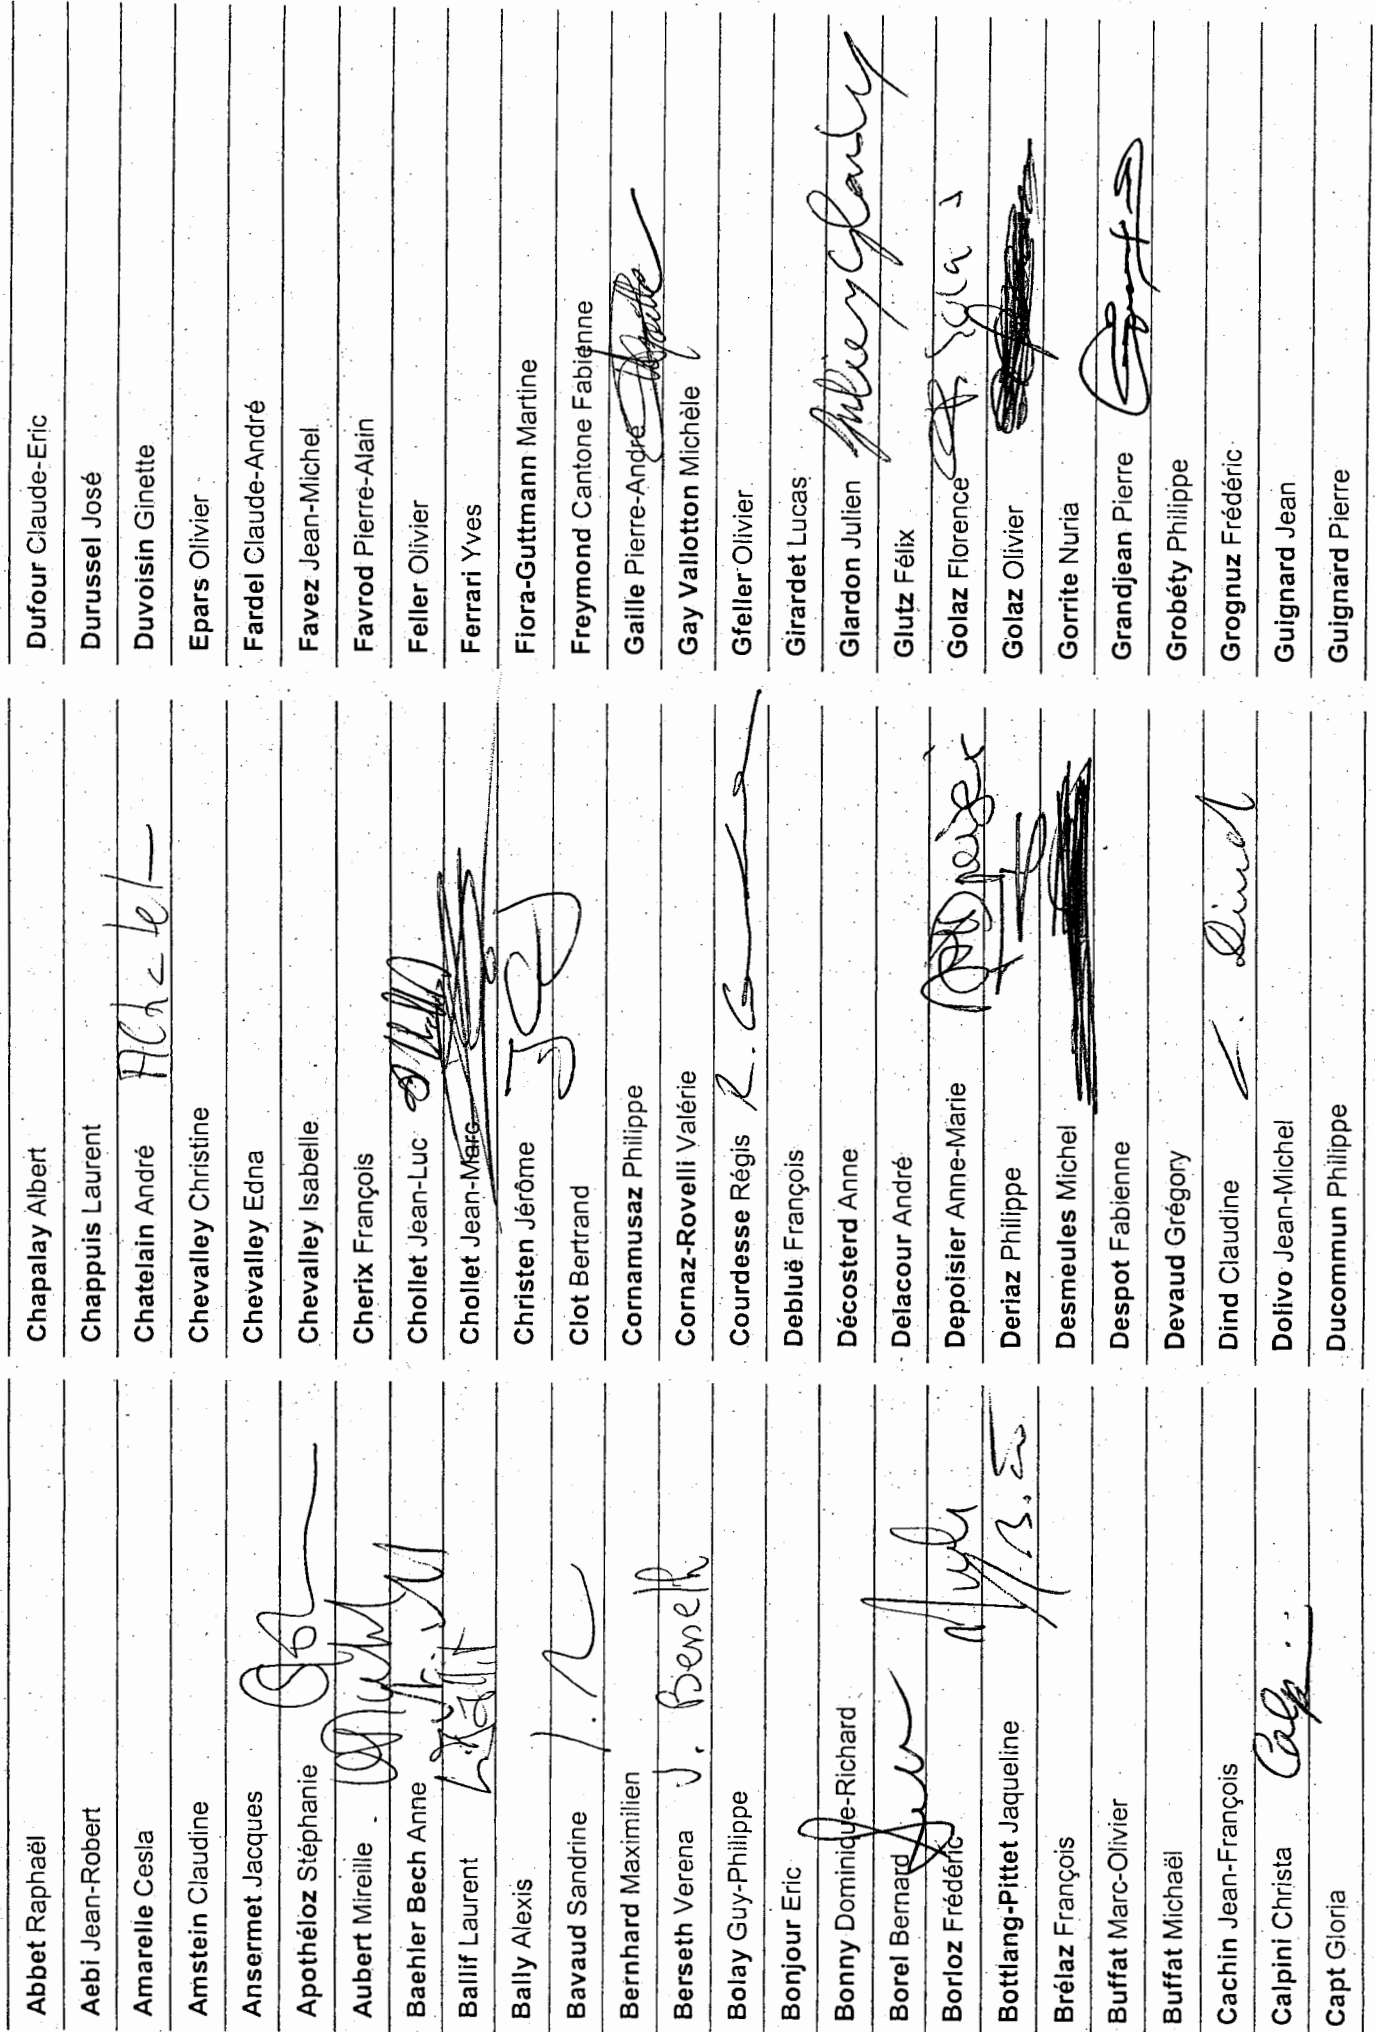 Abbet Raphaël
Aebi Jean-Robert
Amarelle Cesla
Amstein Claudine
Ansermet Jacques
Apothéloz Stéphanie
Aubert Mireille
Baehler Bech Anne
Ballif Laurent
Bally Alexis
Bavaud Sandrine
Bernhard Maximilien
Berseth Verena V. Berseth
Bolay Guy-Philippe
Bonjour Eric
Bonny Dominique-Richard
Borel Bernard
Borloz Frédéric
Bottlang-Pittet Jaqueline
Brélaz François
Buffat Marc-Olivier
Buffat Michaël
Cachin Jean-François
Calpini Christa
Capt Gloria
Chapalay Albert
Chappuis Laurent
Chatelain André
Chevalley Christine
Chevalley Edna
Chevalley Isabelle
Cherix François
Chollet Jean-Luc
Chollet Jean-Marc
Christen Jérôme
Clot Bertrand
Cornamusaz Philippe
Cornaz-Rovelli Valérie
Courdesse Régis
Debluë François
Décosterd Anne
Delacour André
Depoisier Anne-Marie
Deriaz Philippe
Desmeules Michel
Despot Fabienne
Devaud Grégory
Dind Claudine
Dolivo Jean-Michel
Ducommun Philippe
Dufour Claude-Eric
Durussel José
Duvoisin Ginette
Epars Olivier
Fardel Claude-André
Favez Jean-Michel
Favrod Pierre-Alain
Feller Olivier
Ferrari Yves
Fiora-Guttmann Martine
Freymond Cantone Fabienne
Gaille Pierre-André
Gay Vallotton Michèle
Gfeller Olivier
Girardet Lucas
Glardon Julien
Glutz Félix
Golaz Florence
Golaz Olivier
Gorrite Nuria
Grandjean Pierre
Grobéty Philippe
Grognuz Frédéric
Guignard Jean
Guignard Pierre